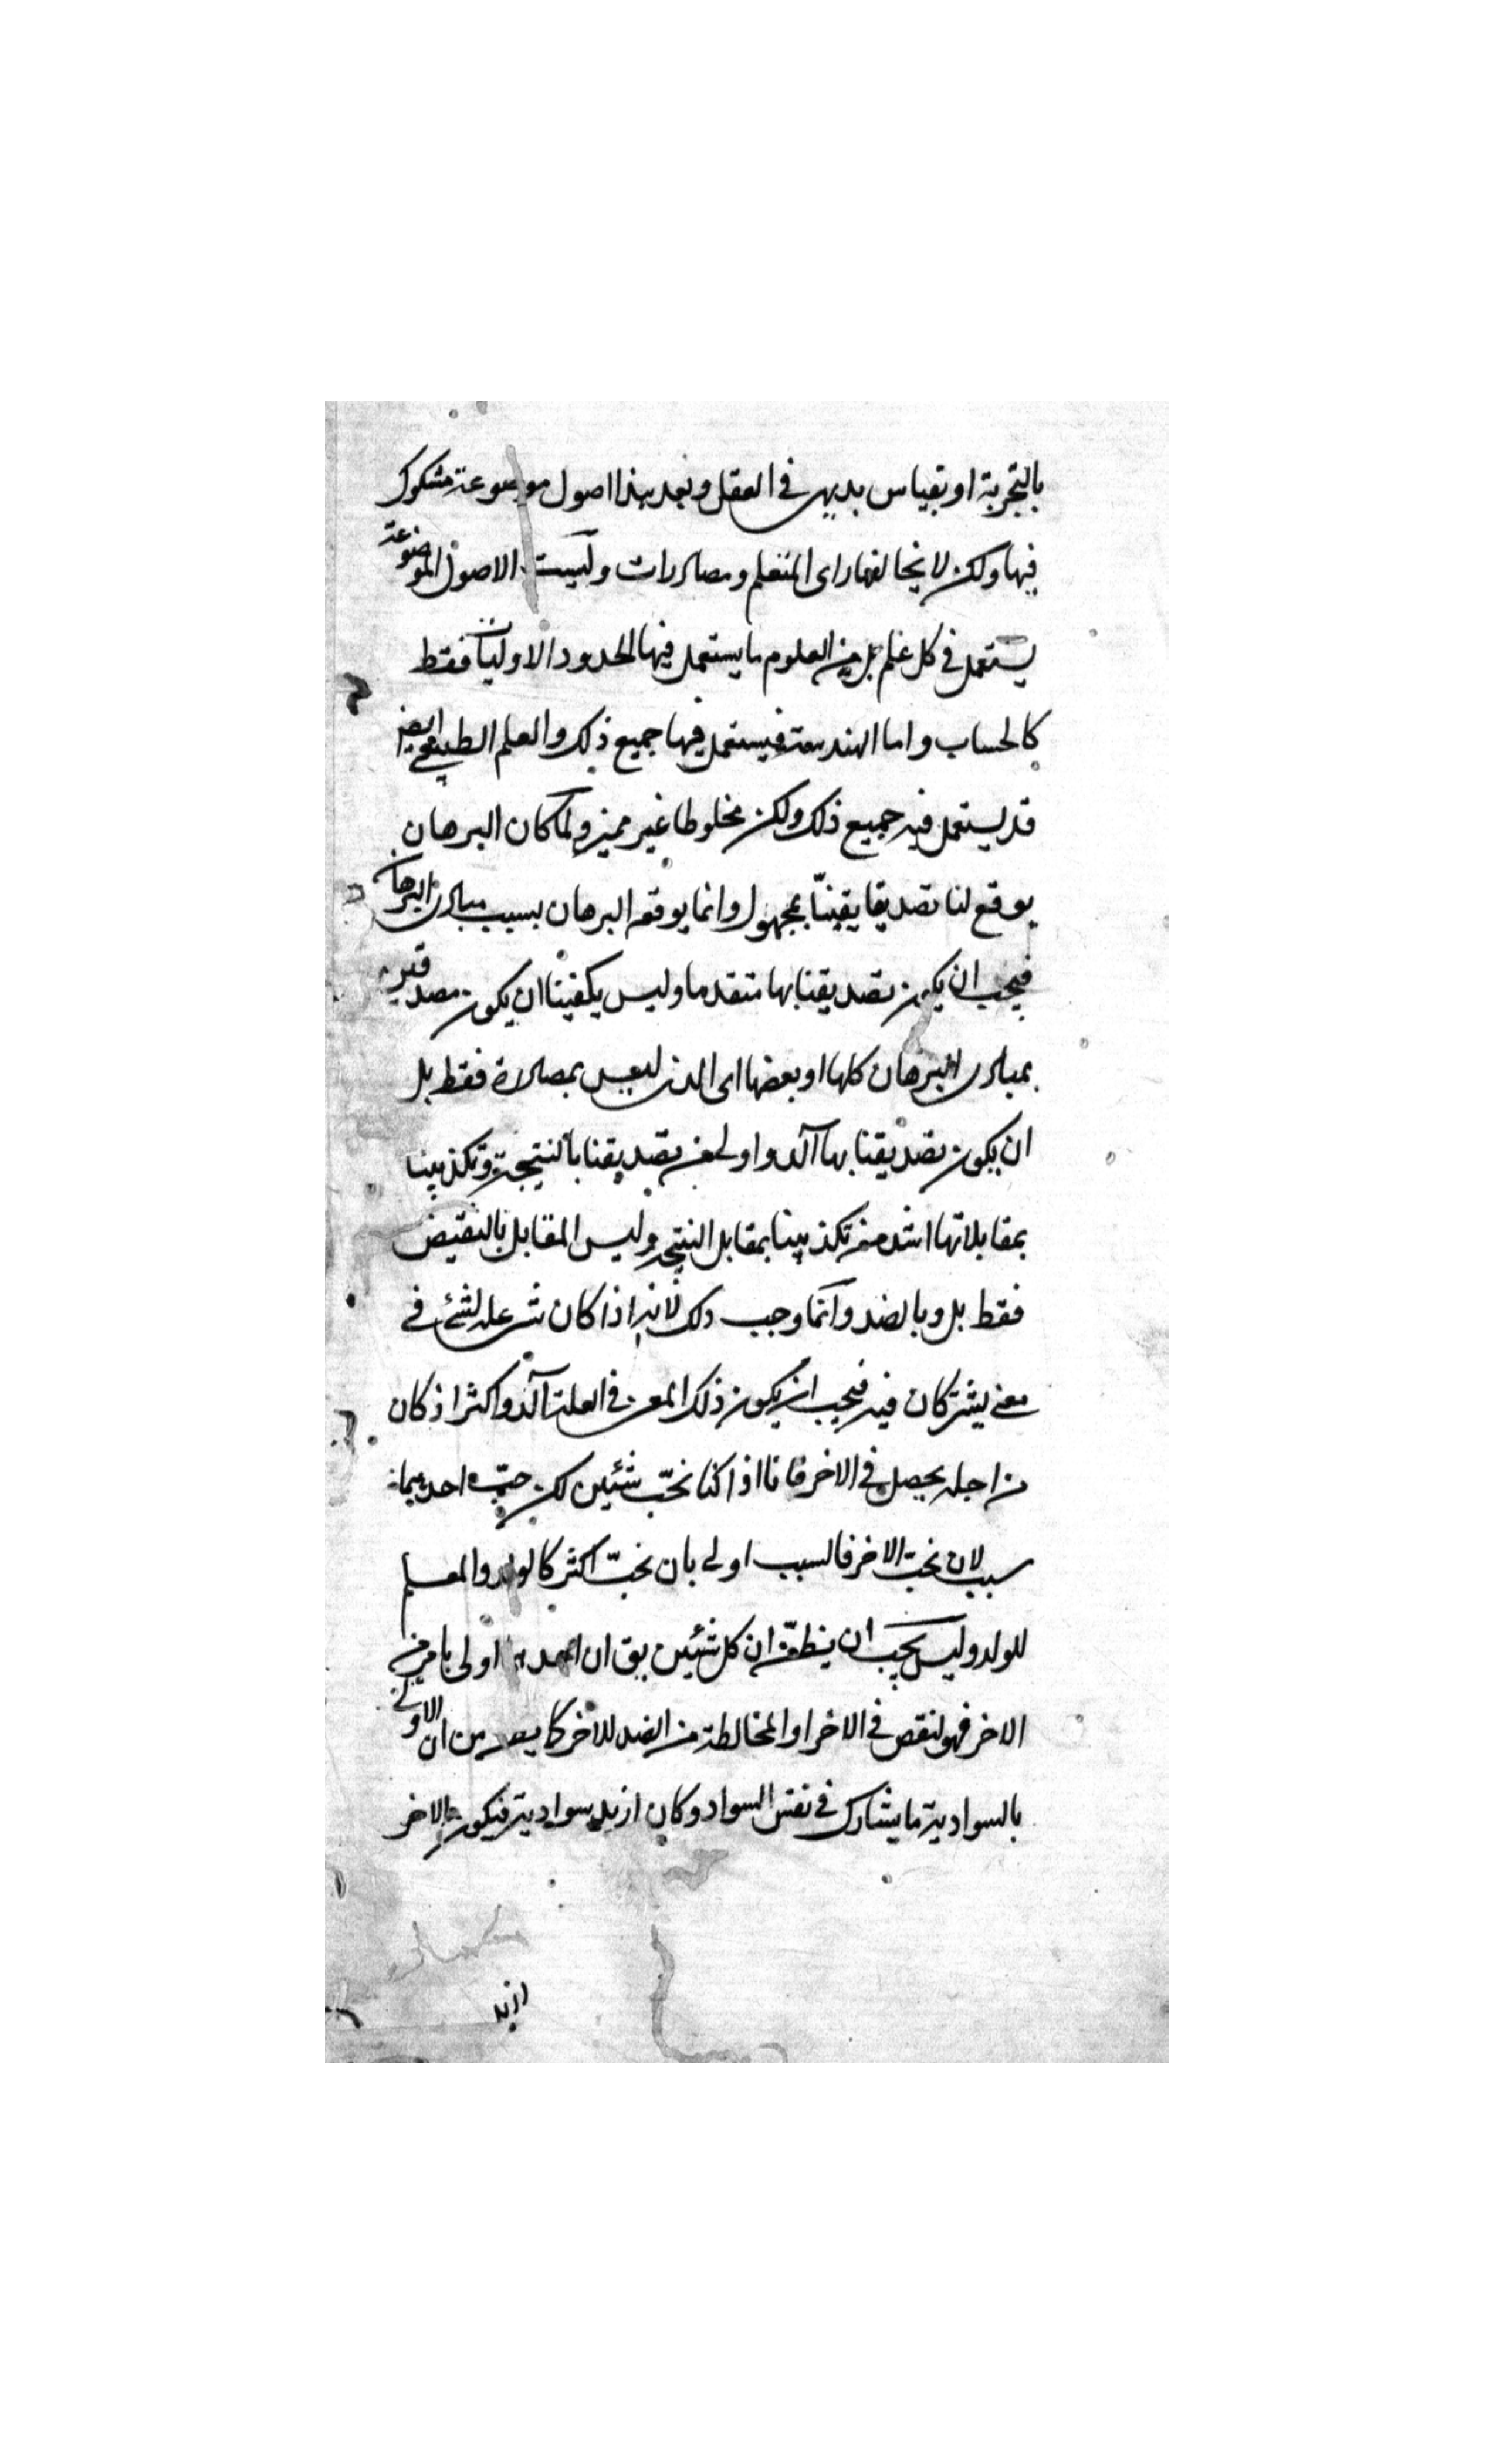 بالتجربة او بقياس بديهى فى العقل وبعد هذا اصول موضوعة مشكوك
فيها ولكن لا يخالفها راى المتعلم ومصادرات وليست الاصول الموضوعة
يستعمل فى كل علم بل من العلوم ما يستعمل فيها الحدود الاوليات فقط
كالحساب واما الهندسة فيستعمل فيها جميع ذلك والعلم الطبيعى ايضا
قد يستعمل فيه جميع ذلك ولكن مخلوطا غير مميز ولما كان البرهان
يوقع لنا تصديقا يقينيّا بمجهول وانما يوقعه البرهان بسبب مبادى البرهان
فيجب ان يكون تصديقنا بها متقدما وليس يكفينا ان يكون
بمبادى البرهان كلها او بعضها اى الذى ليس بمصادرة فقط بل
ان يكون تصديقنا بها آكد واولى من تصديقنا بالنتيجة وتكذيبنا
بمقابلاتها اشد من تكذيبنا بمقابل النتيجة وليس المقابل بالنقيض
فقط بل وبالضد وانما وجب ذلك لانه اذا كان شى علة لشئ فى
معنى يشتركان فيه فيجب ان يكون ذلك المعنى فى العلة آكد واكثر اذ كان
من اجله يحصل فى الاخر فانا اذا كنا نحبّ شئين لكن حبّ احديهما
سبب لان نحب الاخر فالسبب اولى بان نحبّ اكثر كالولد والمعلم
للولد وليس يجب ان ينظن ان كل شئين يق ان احدهما اولى بامر من
الاخر فهو لنقص فى الاخر او المخالطة من الضد للاخر كما ان الاولى
بالسوادية ما يشارك فى نفس السواد وكان ازيد سوادية فيكون الاخر
ازيد